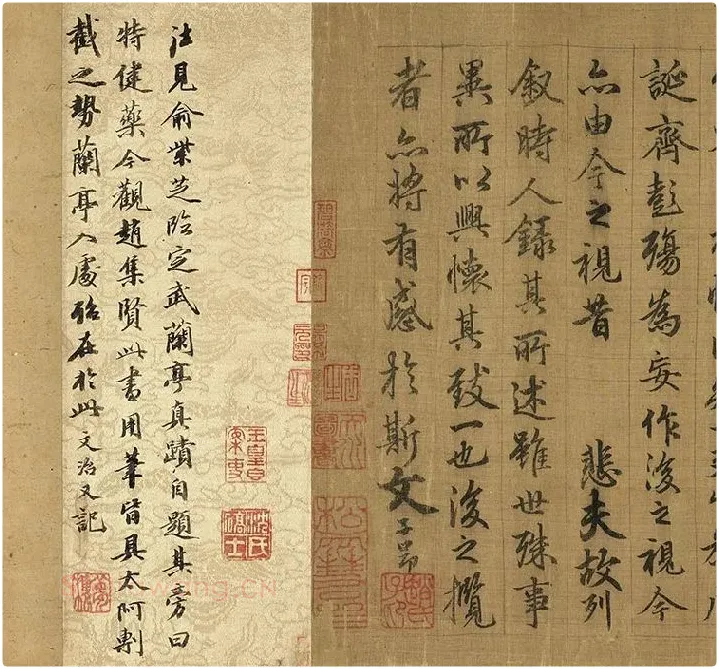 誕齊彭殤為妄作後之視今
亦由今之視昔 悲夫故列
叙時人錄其所述雖世殊事
異所以興懷其致一也後之攬
者亦將有感於斯文 子昂
往見俞紫芝臨定武蘭亭真蹟自題其旁曰
特健藥今觀趙集賢此書用筆皆具太阿剸
截之勢蘭亭入處殆在於此 文治又記